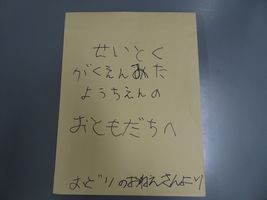 せいとく
がくえんみた
ようちえんの
おともだちへ
みどりのおねえさんより